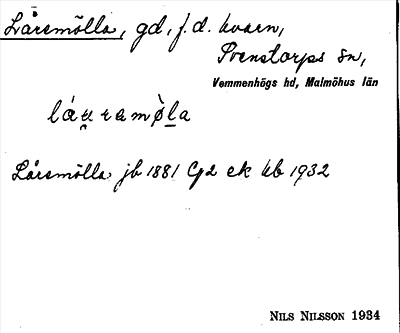 Låremölla, gd, f.d. kvarn,
Svenstorps sn,
Vemmenhögs hd, Malmöhus län
Låremölla jb 1881 G2 ek kb 1932
NILS NILSSON 1934